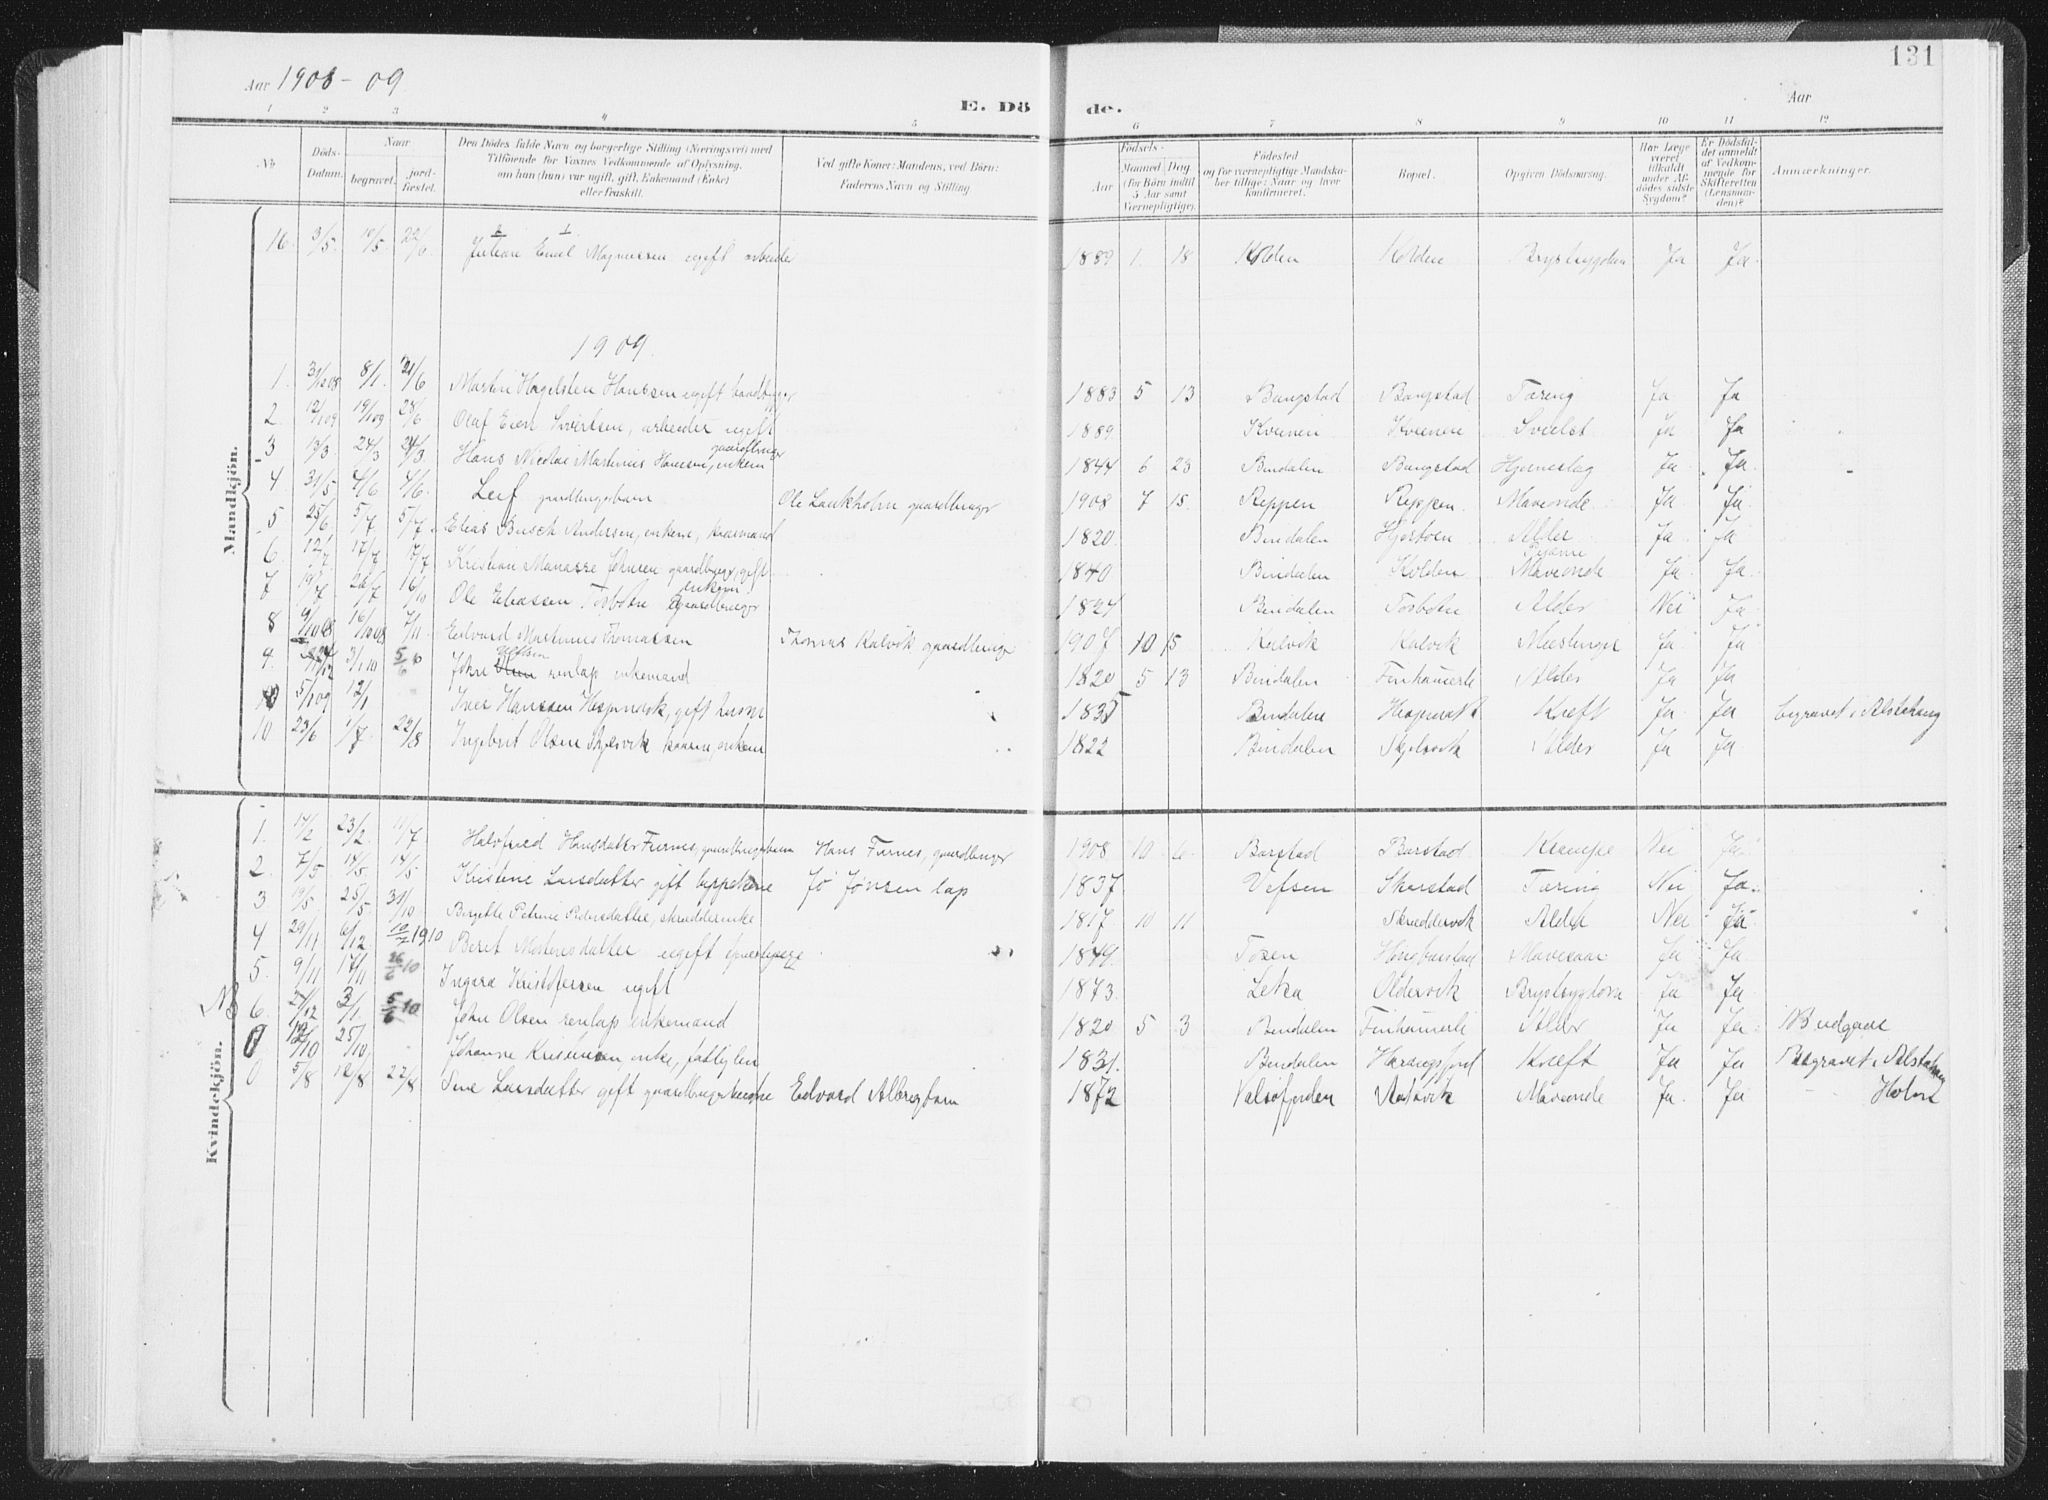 131
Aar 1908-09
E. Dö de.
Aar
1 2 3 4 5 6 7 8 9 10 11 12
No
Döds-Datum.
Naar
begravet.
jordfæstet.
Den Dödes fulde Navn og borgerlige Stilling (Næringsvei) med
Tilföiende for Voxnes Vedkommende af Oplysning,
om han (hun) var ugift, gift, Enkemand (Enke)
eller fraskilt.
Ved gifte Koner: Mandens, ved Börn:
Faderens Navn og Stilling
Födsels-
Aar
Maaned
Dag
(for Börn indtil
5 Aar samt
Værnepligtige).
Födested
og for værnepligtige Mandskaber
tillige: Naar og hvor
konfirmeret.
Bopæl.
Opgiven Dödsaarsag.
Har Læge været tilkaldt under Afdödes sidste Sygdom?
Er Dödsfaldet anmeldt af Vedkommende for Skifteretten (Lensmanden)?
Anmærkninger.
Mandkjön.
16. 3/5. 10/5. 22/6 Julian Emil Magnussen ugift arbeider 1889 1. 18 Kolden Kolden Brystsygdom Ja Ja
1909.
1. 31/12 08 8/1. 21/6 Martin Hagelsten Hanssen ugift 1883 5 13 Bangstad Bangstad Tæring Ja Ja
2. 12/1 09 19/1 09 28/6 Olaf Sivertsen, arbeider ugift 1889 Kveinen Kveinen Ja Ja
3 13/3. 24/3 24/3 Hans Nicolai Martinus Hansen, enkem gaardbruger 1844 6 23 Bindalen Bangstad Hjerneslag Ja Ja
4 31/5 4/6 4/6. Leif gaardbrugerbarn Ole Laukholm gaardbruger 1908 7 15. Reppen Reppen. Maveonde Ja Ja
5 25/6. 5/7 5/7. Elias Busch Andersen, enkem, kaarmand 1820. Bindalen Hjortøen Alder Ja Ja
6. 12/7 17/7 17/7 Kristian Manasse Johnsen gaardbruger, gift 1840 Bindalen Kolden Maveonde Ja Ja
7 19/7 26/7 16/10 Ole Eliassen Tosbotn gaardbruger enkem 1824 Bindalen Tosboten Alder Nei Ja
8 9/10 08 16/10 08 7/11. Edvard Martinus Thomassen Thomas Kalvik gaardbruger 1907 10 15 Kalvik Kalvik Meslinger Ja Ja
9. 3/1 10 5/6 John renlap enkemand 1820 5 13 Bindalen Alder Ja Ja
5/1 09 12/1 Iver Hanssen gift husm 1835 Bindalen Kræft Ja Ja begravet i Alstahaug
10 23/6 1/7. 22/8 Ingebrit Olsen Skjelsvik kaarm, enkem 1822 Bindalen Skjelsvik Alder Ja Ja
Kvindekjön.
1. 17/2 23/2. 11/7 Halvfried Hansdatter Furnes, gaardbrugerbarn Hans Furnes, gaardbruger 1908 10 6 Barstad Barstad Krampe Nei Ja
2. 7/5 14/5. 14/5. Kristine Larsdatter gift lappekone Jo Jonsen lap 1837 Vefsen Skarstad Tæring Nei Ja
3 19/5 25/5. 31/10 Birgitte Petrine Pedersdatter, skrædderenke 1817 10 11 Skræddervik Alder Nei Ja
4 29/11 6/12 10/7 1910 Berit Mortensdatter ugift 1849. Tosen Horsbarstad Mavesaar Ja Ja
5. 9/11 17/11 26/6 10 Ingara Kristofersen ugift 1873. Leka Oldervik Brystsygdom Ja Ja
NB 6. 27/12 3/1. 5/6 10 John Olsen renlap enkemand 1820 5 3 Bindalen Alder Ja Ja NB udgaar
25/10 Johanne Kristensen enke, fattiglem 1831. Bindalen Harangsfjord Kræft Ja Ja Begravet i Alstahaug
0 5/8 12/8 22/8 Sine Larsdatter gift gaardbrugerkone Edvard Albregtsen 1872 Valsøfjorden Maveonde Ja. Ja - Holm